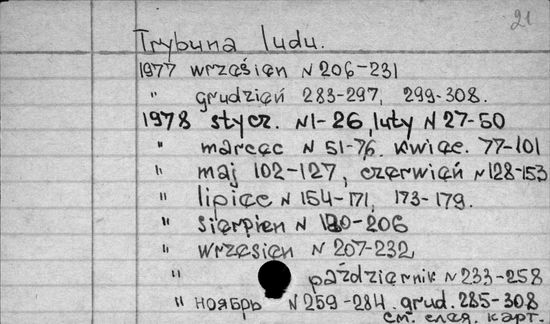 21
Trybuna ludu.
1977 wrzesień N 206-231
" grudzień 283-297, 299-308.
1978 stycz. N1-26, luty N 27-50
" marzec N 51-76. kwiec. 77-101
" maj 102-127, czerwień N 128-153
" lipiec N 154-171, 173-179.
" sierpien N 180-206
" wrzesien N 207-232,
" październik N 233-258
" ноябрь N 259-284. grud. 285-308
см. след. карт.